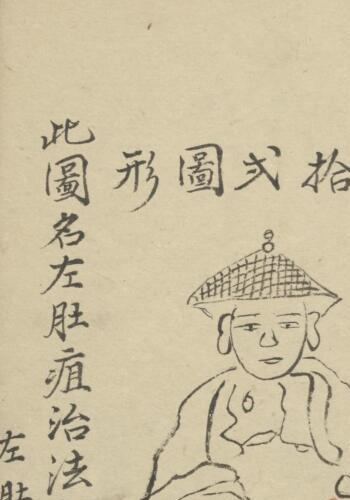 拾弍圖形
此圖名左肚疽治法
左肚